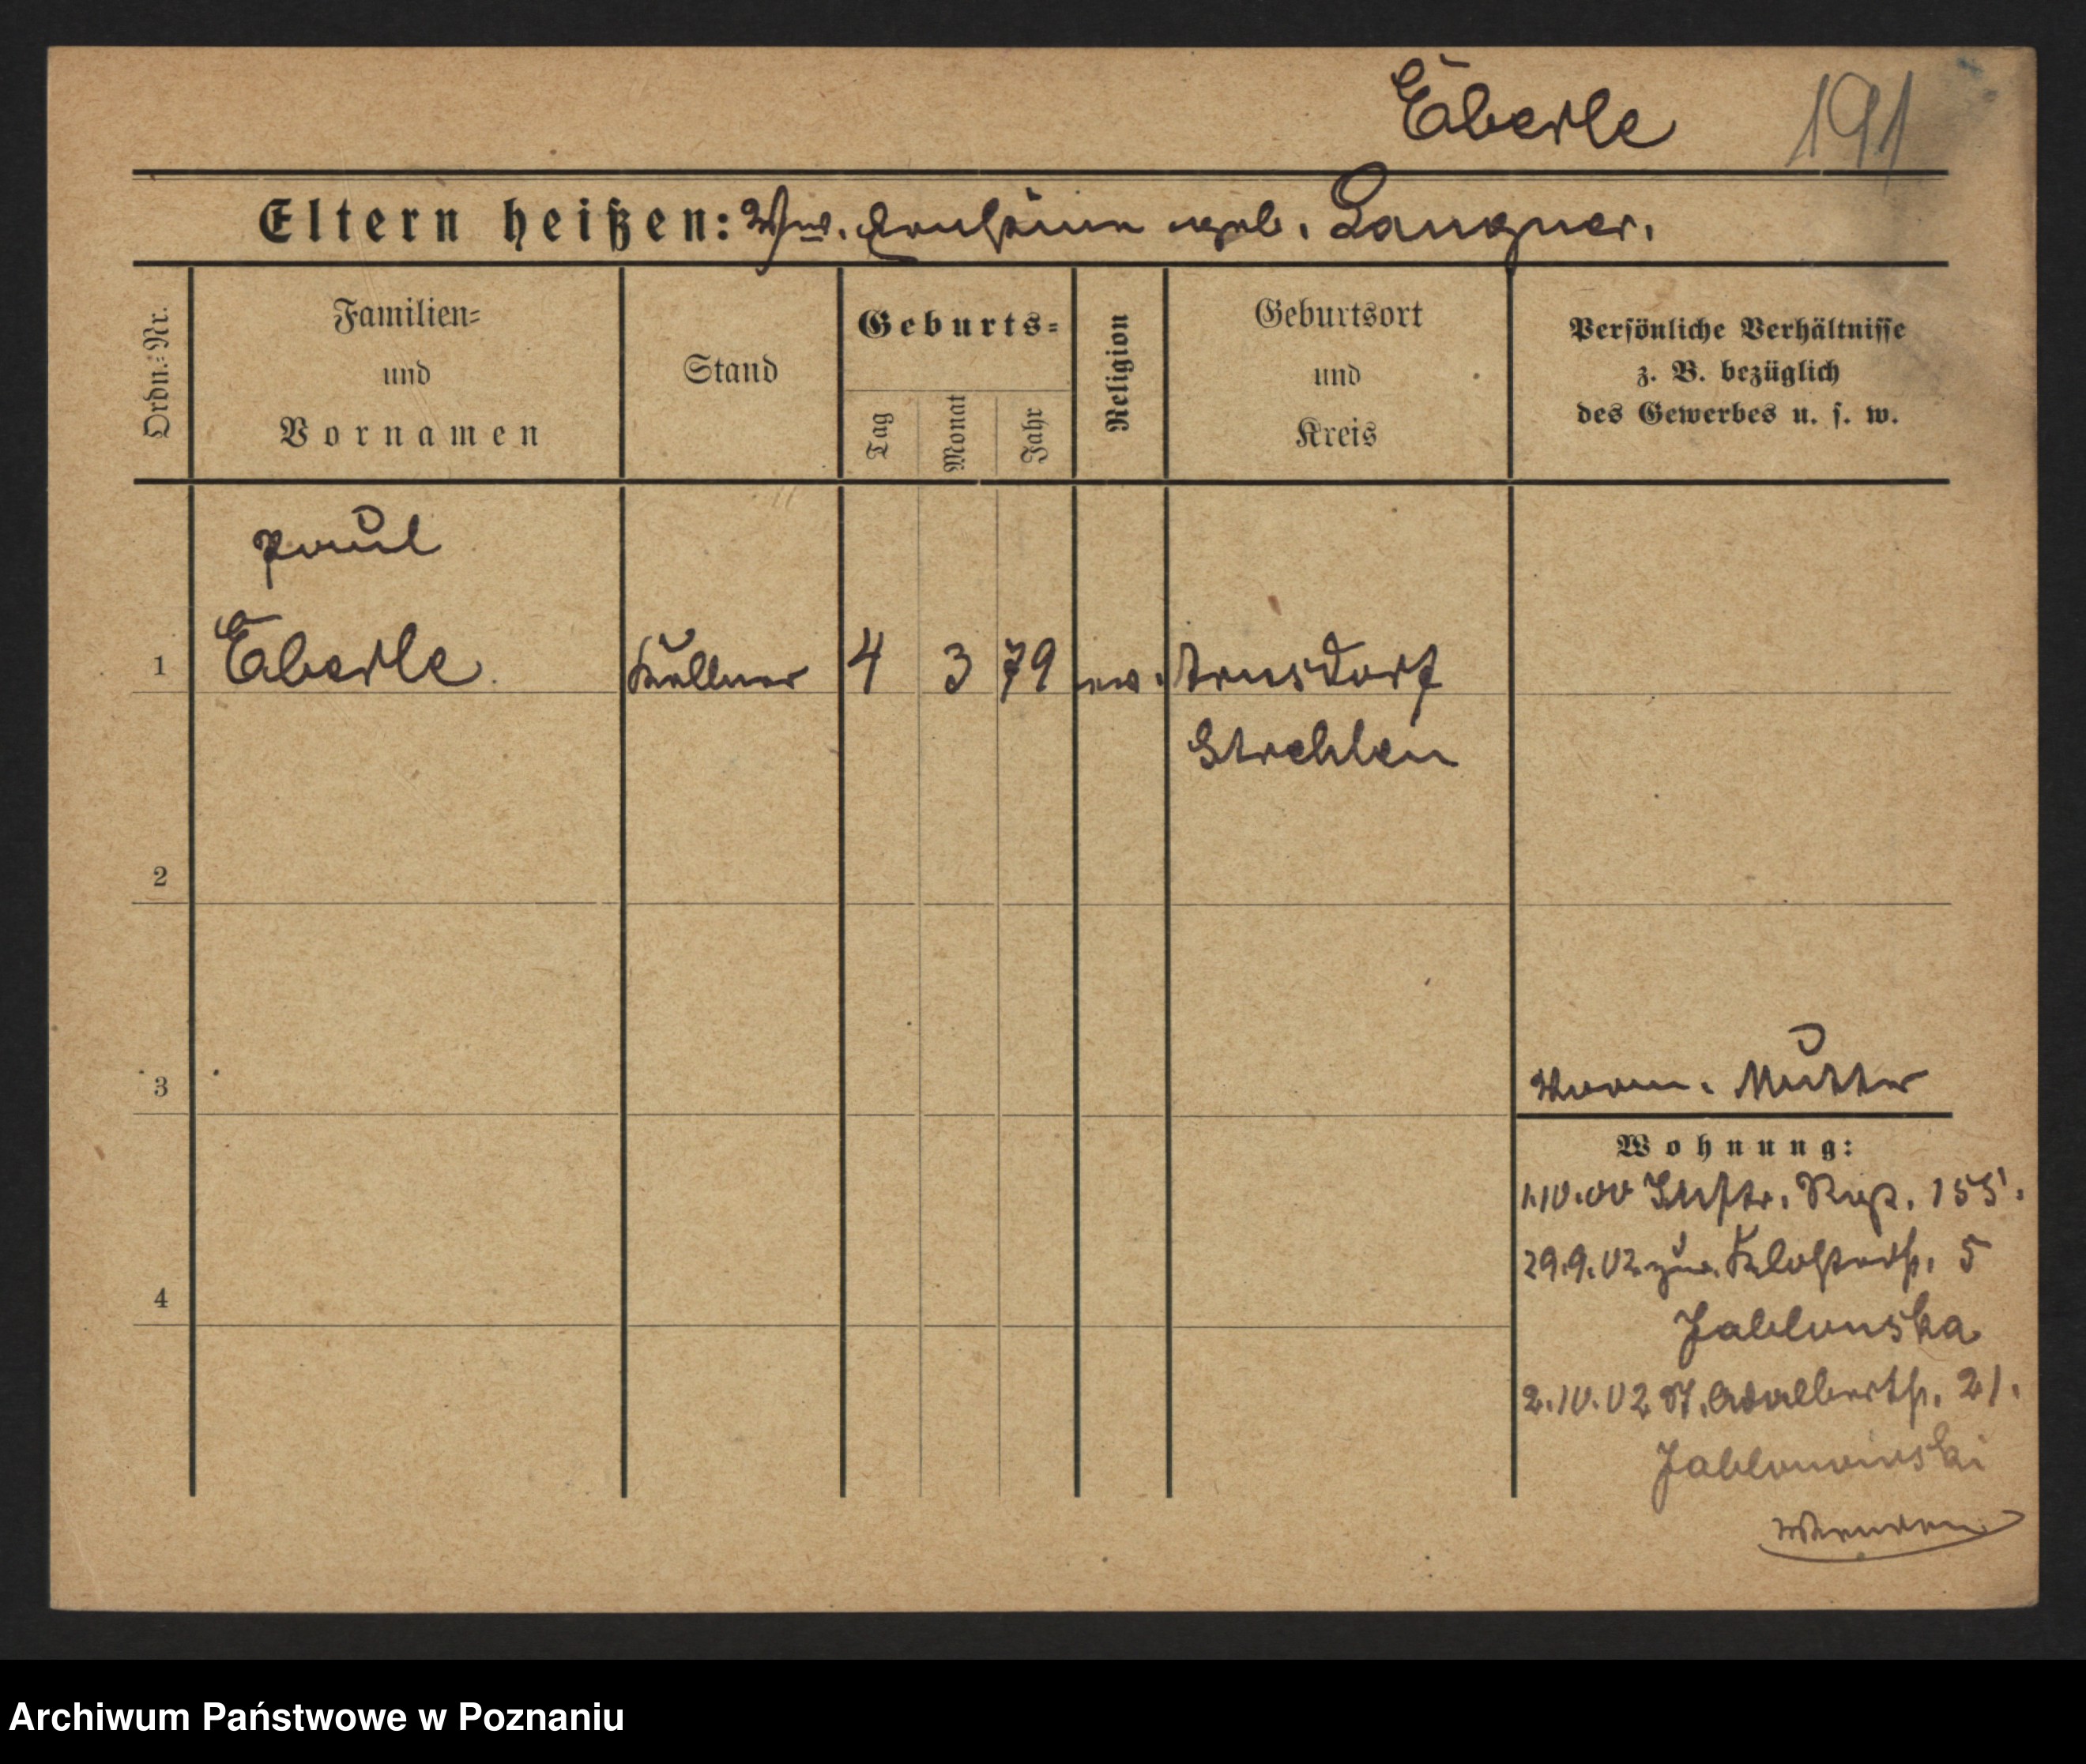 Eberle 191
Eltern heißen: Ww. geb. Langner.
Ordn.-Nr.
Familien-
und
Vornamen
Stand
Geburts-
Tag
Monat
Jahr
Religion
Geburtsort
und
Kreis
Persönliche Verhältnisse
z. B. bezüglich
des Gewerbes u. s. w.
Paul
1 Eberle Kellner 4 3 79 ev. Arnsdorf
Strehlen
2
3 Mutter
Wohnung:
1.10.00 155.
29.9.02 zur. Klosterstr. 5
4
Jablonska
2.10.02 St. Adalbertstr. 21.
Archiwum Państwowe w Poznaniu